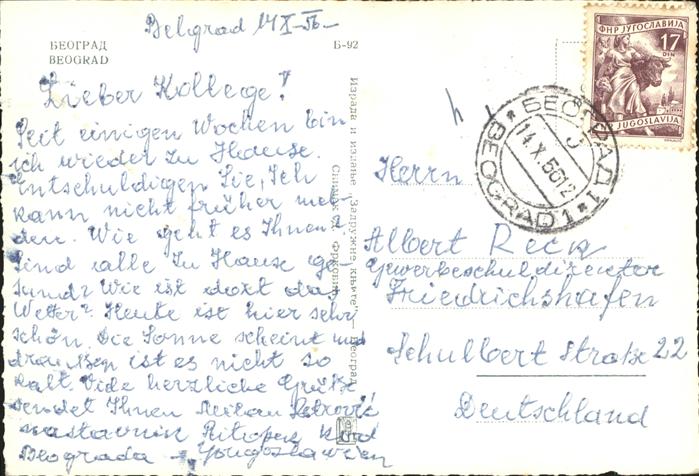 Belgrad 14 X-56-
БЕОГРАД
BEOGRAD
Б-92
Lieber Kollege!
Seit einigen Wochen bin
ich wieder zu Hause.
Entschuldigen Sie, Ich
kann nicht früher mel-
den. Wie geht es Ihnen?
Sind alle zu Hause ge-
sund? Wie ist dort das
Wetter? Heute ist hier sehr
schön. Die Sonne scheint und
draußen ist es nicht so
kalt. Viele herzliche Grüße
sendet Ihnen Milan Petrović
nastavnik Ritopek kod
Beograda - Jougoslawien
Израда и издање "Задружне књиге" - Београд
Снимак
ФНР ЈУГОСЛАВИЈА
17
DIN
JUGOSLAVIJA
БЕОГРАД 1
14.X.56 12
BEOGRAD 1
Herrn
Albert Reck
Gewerbeschuldirektor
Friedrichshafen
Straße 22
Deutschland